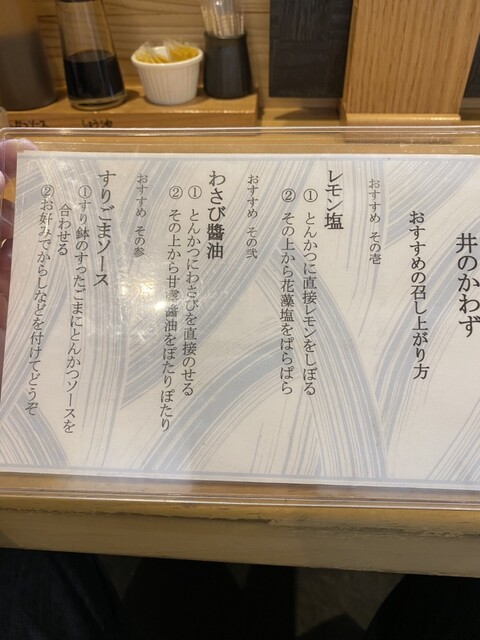 井のかわず
おすすめの召し上がり方
おすすめ その壱
レモン塩
① とんかつに直接レモンをしぼる
② その上から花藻塩をぱらぱら
おすすめ その弐
わさび醬油
① とんかつにわさびを直接のせる
② その上から甘露醬油をぽたりぽたり
おすすめ その参
すりごまソース
①すり鉢のすったごまにとんかつソースを
合わせる
②お好みでからしなどを付けてどうぞ
しょうゆ